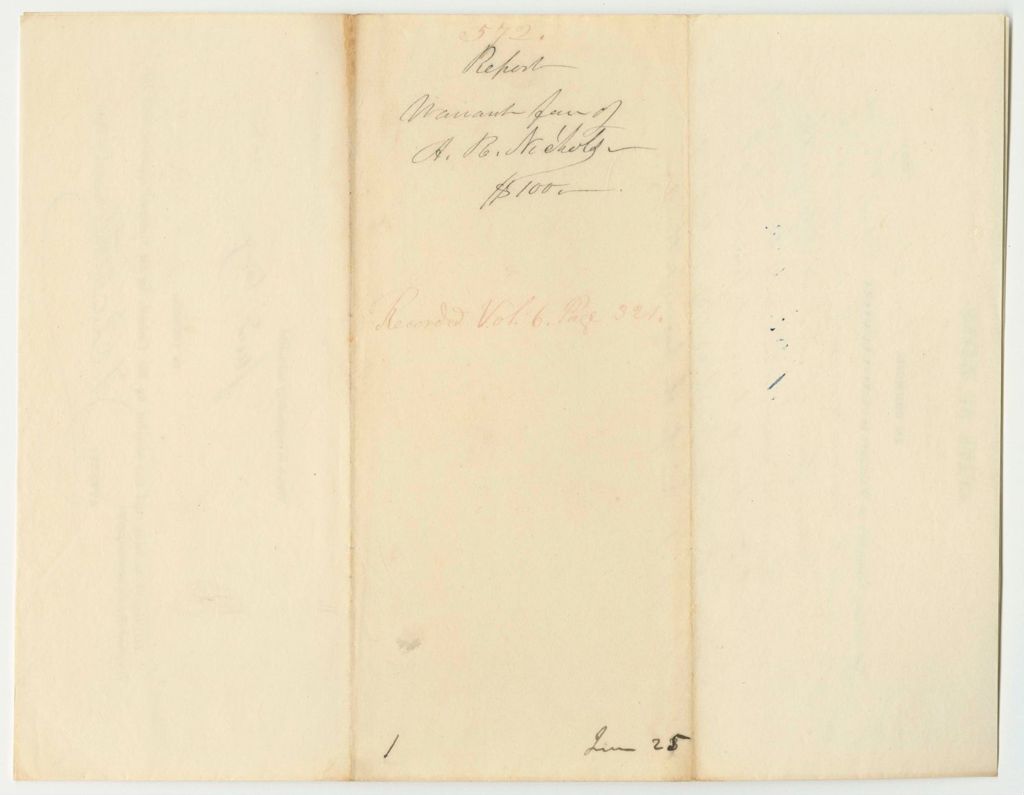 572.
Report
Warrant fav of
A. R. Nichols
$100
Recorded Vol. 6. Page 321.
1
June 25